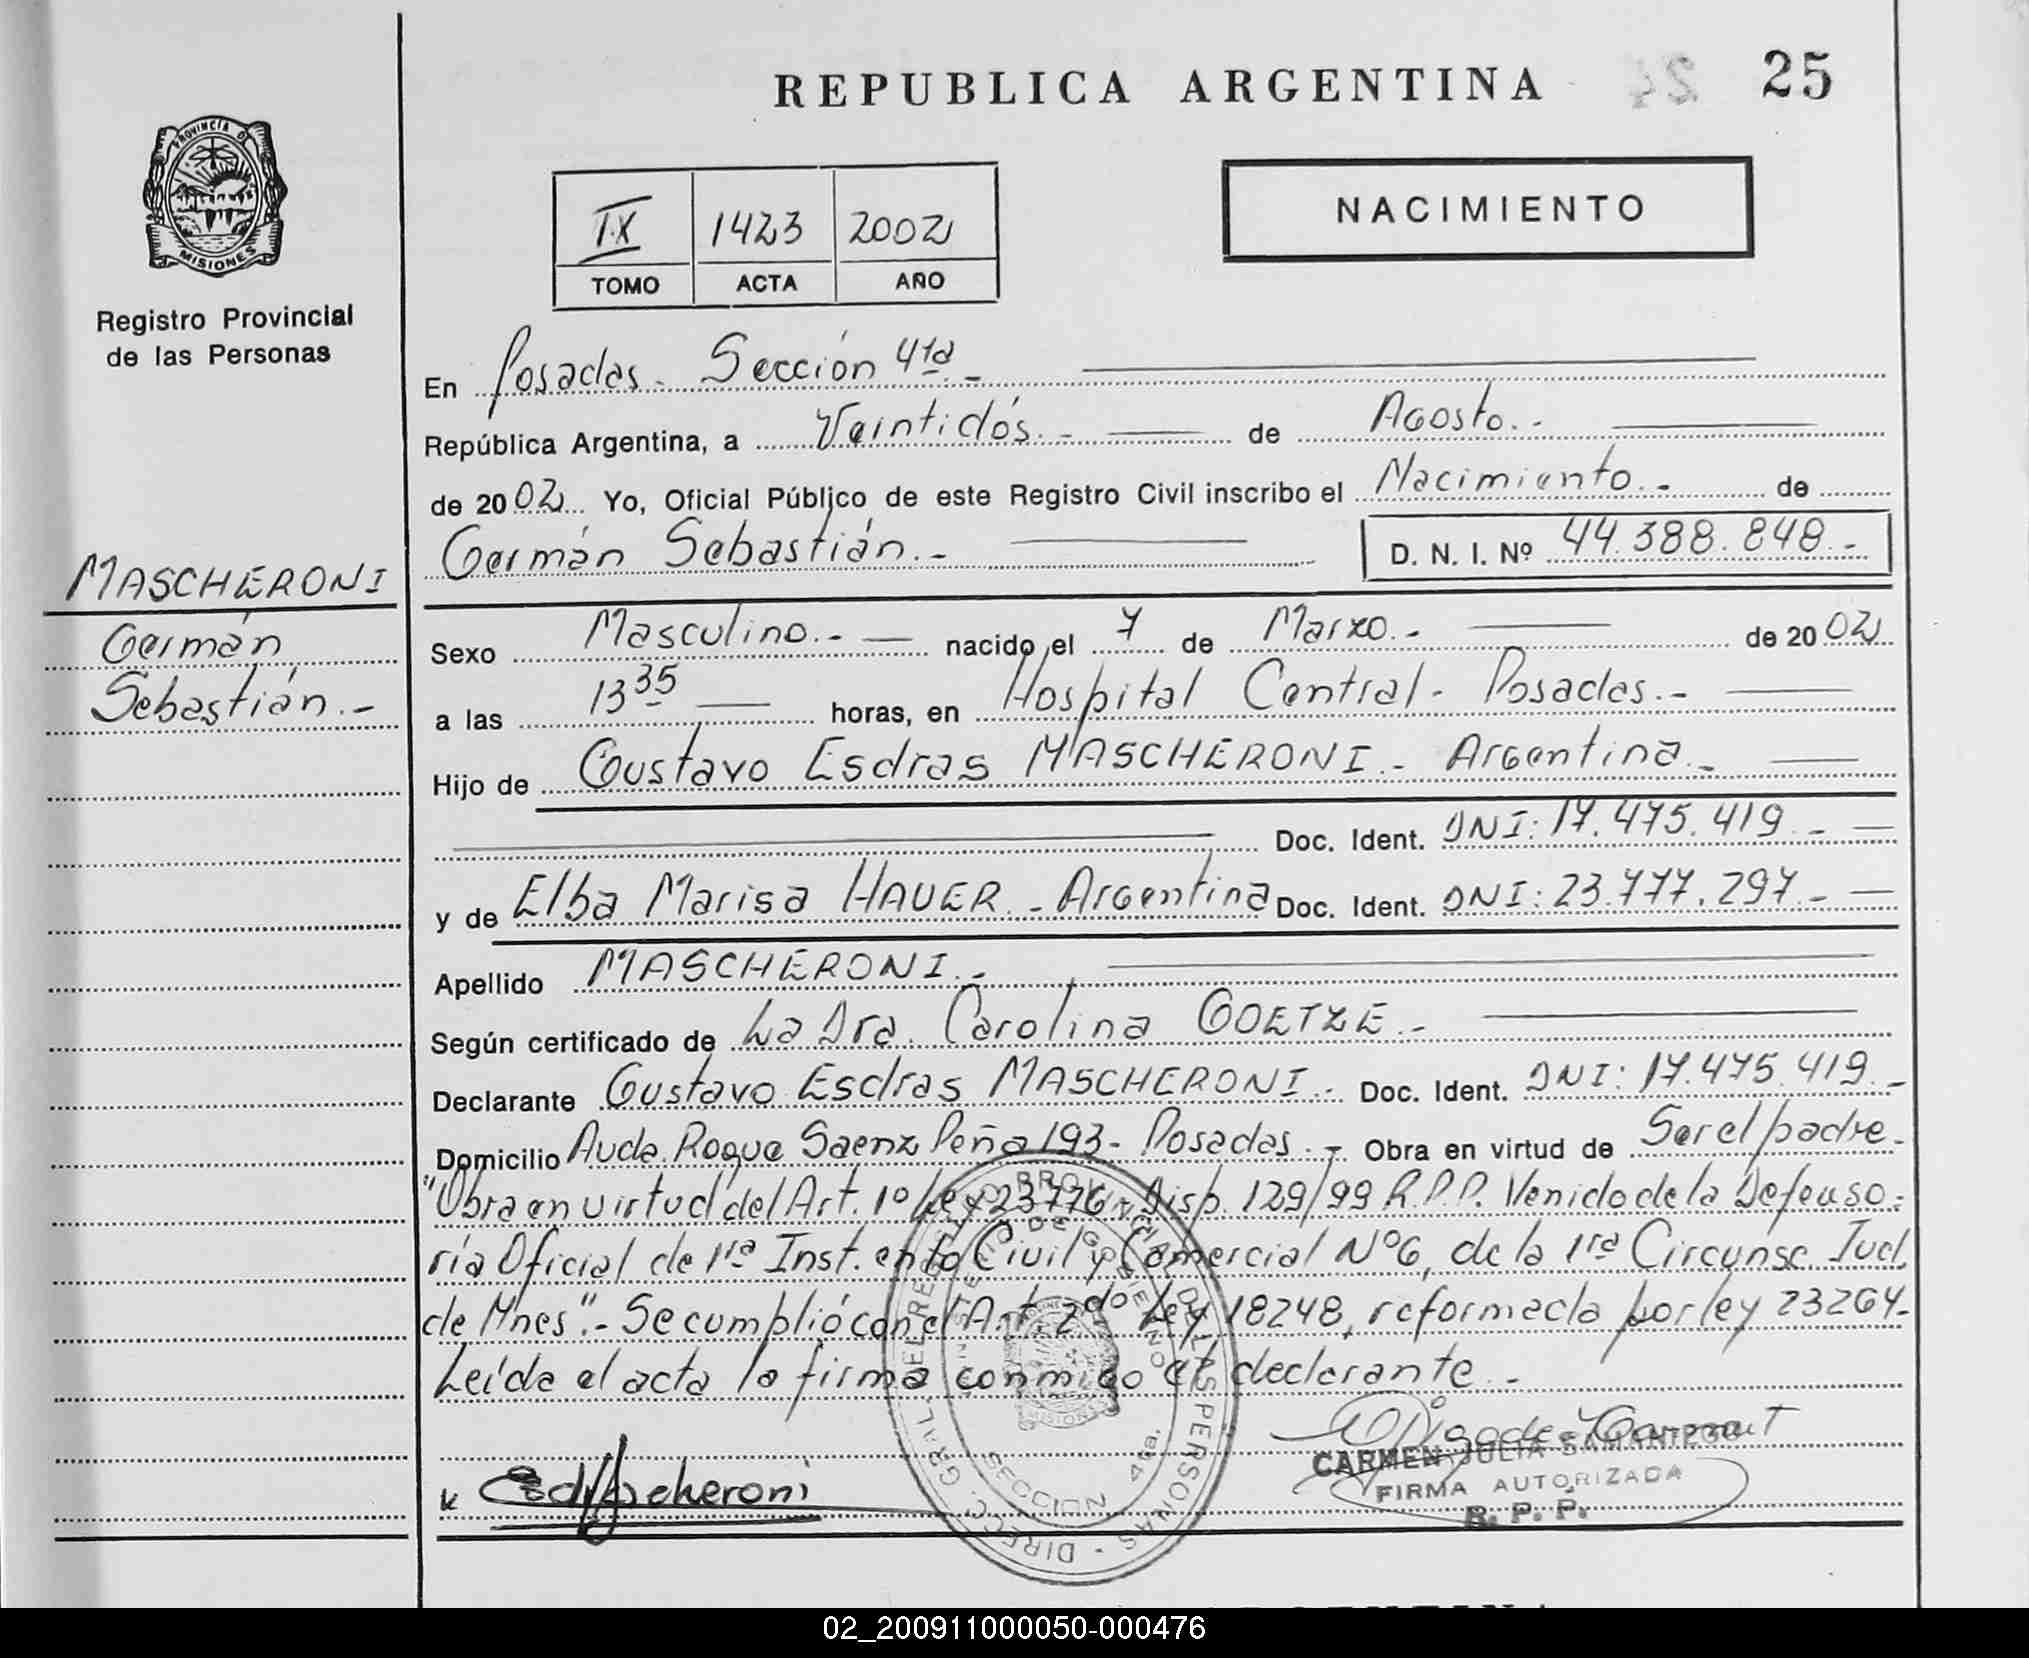 REPUBLICA ARGENTINA 25
PROVINCIA DE
MISIONES
Registro Provincial
de las Personas
IX 1423 2002
TOMO ACTA AÑO
NACIMIENTO
En Posadas.- Sección 4ta.-
República Argentina, a Veintidós.- de Agosto.-
de 2002 Yo, Oficial Público de este Registro Civil inscribo el Nacimiento.- de
Germán Sebastián.- D. N. I. Nº 44.388.848.-
MASCHERONI
Germán
Sebastián.-
Sexo Masculino.- nacido el 7 de Marzo.- de 2002
a las 13 35 horas, en Hospital Central- Posadas.-
Hijo de Gustavo Esdras MASCHERONI.- Argentina.-
Doc. Ident. DNI: 17.475.419.-
y de Elba Marisa HAUER.- Argentina Doc. Ident. DNI: 23.777.297.-
Apellido MASCHERONI.-
Según certificado de La Dra. Carolina GOETZE.-
Declarante Gustavo Esdras MASCHERONI.- Doc. Ident. DNI: 17.475.419.-
Domicilio Avda. Roque Saenz Peña 193- Posadas.- Obra en virtud de Ser el padre.
"Obra en virtud del Art. 1º Ley 23776, Disp. 129/99 R.P.P. Venido de la Defenso-
ría Oficial de 1ra Inst. en lo Civil y Comercial Nº6, de la 1ra Circunsc. Jud.
de Mnes".- Se cumplió con el Art. 2do Ley 18248, reformada por ley 23264.-
Leída el acta la firma conmigo el declarante.-
DIRECC. GRAL. DEL REGISTRO PROVINCIAL DE LAS PERSONAS
MINISTERIO DE GOBIERNO
MISIONES
SECCION 4ta.
CARMEN JULIA SAMANIEGO
FIRMA AUTORIZADA
R. P. P.
02_200911000050-000476